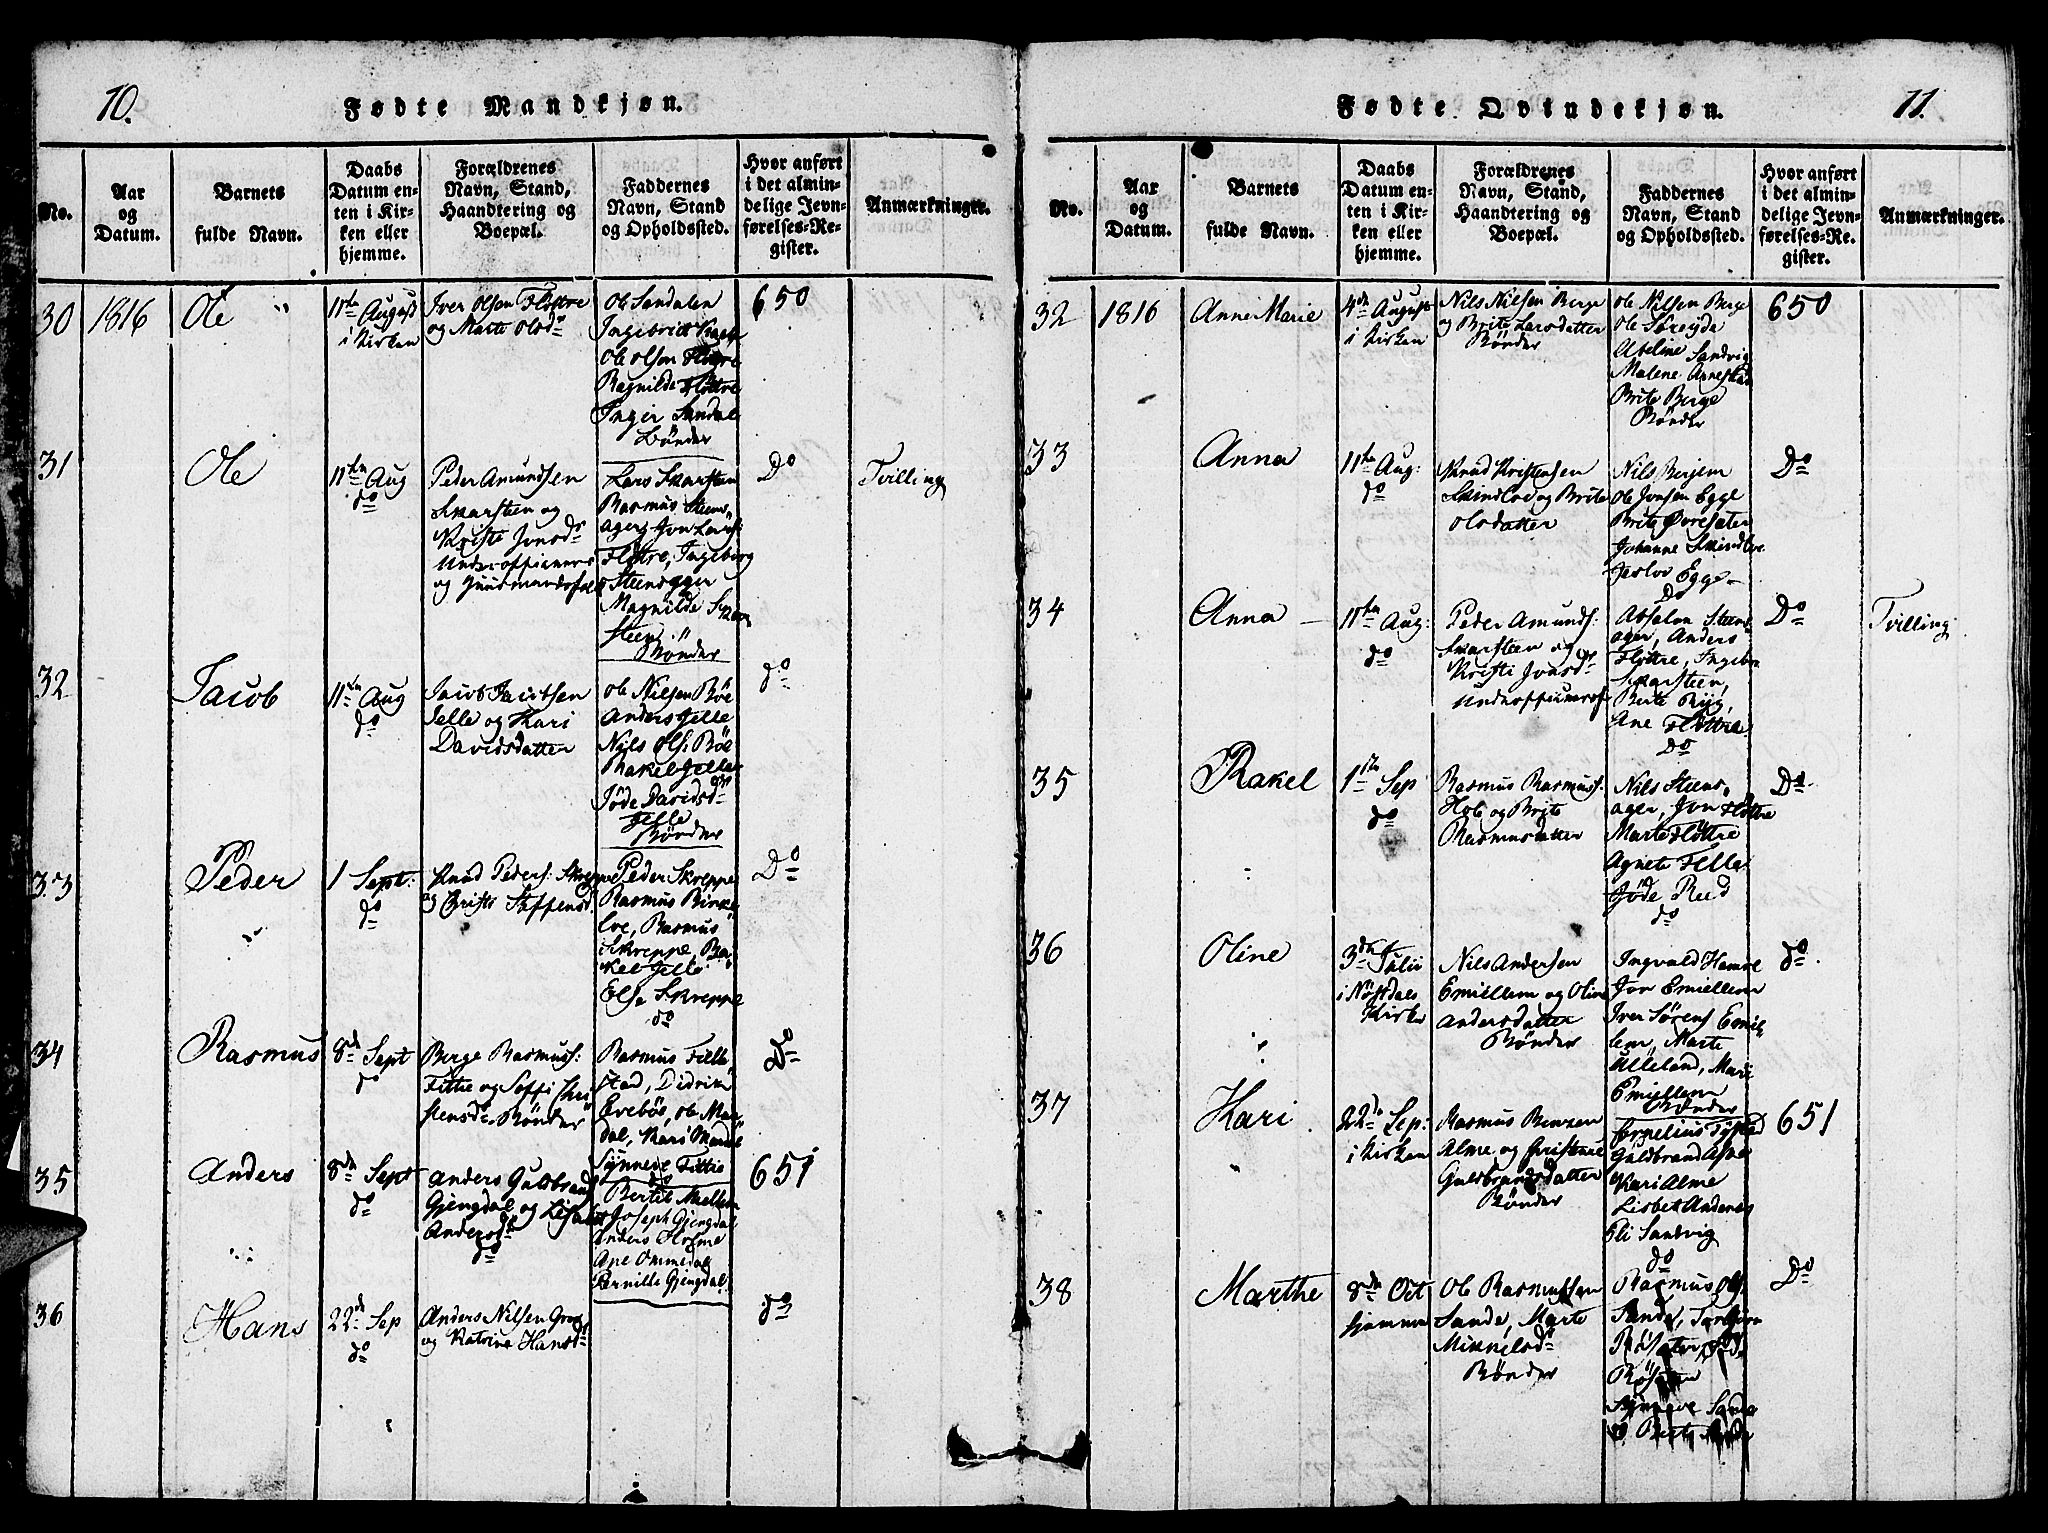 10.
Fødte Mandkjøn.
No.
Aar
og
Datum.
Barnets
fulde Navn.
Daabs
Datum en-
ten i Kir-
ken eller
hjemme.
Forældrenes
Navn, Stand,
Haandtering og
Boepæl.
Faddernes
Navn, Stand
og Opholdssted.
Hvor anført
i det almin-
delige Jevn-
førelses-Re-
gister.
Anmærkninger.
30
1816
Ole
11te August
i Kirken
Iver Olsen Fløttre
og Marte Olsd
Ole Sandalen
Ingebrit
Ole Olsen Fløttre
Ragnilde Fløttre
Inger Sandal
Bönder
650
31
Ole
11te Aug
do
Peder Amundsen
Skarsteen og
Kristi Jonsd
Underofficeer
og
Lars Skarsteen
Rasmus Steens
ager, Jon Lars:
Fløttre, Ingeborg
Steensager
Magnilde Skar
steen
Bönder
Do
Tvilling
32
Jacob
11te Aug
do
Jacob Jacobsen
Felle og Kari
Davidsdatter
Ole Nilsen Böe
Anders Felle
Nils Ols: Böe
Rakel Felle
Jöde Davidsd
Felle
Bönder
do
33
Peder
1 Sept:
do
Knud Peders: Skreppe
og Christi Steffensd
Peder Skreppe
Rasmus Birke
loe, Rasmus
Skreppe, Ra
kel Felle
Else Skreppe
do
Do
34
Rasmus
8de Sept
do
Berge Rasmuss:
Fittie og Soffi Chri
stensd Bönder
Rasmus Felle
stad, Didrik
Evebös, Ole Man
dal, Kari Mandal
Synneve Fittie
do
Do
35
Anders
8de Sept
do
Anders Guldbrand
Gjengdal og Lisabet
Andersd
do
Bertil Moellem
Joseph Gjengdal
Anders Holme
Ane Ommedal
Pernille Gjengdal
651
36
Hans
22de Sep
do
Anders Nilsen
og Katrine Hansd
do
Fødte Qvindekjøn.
11.
No.
Aar
og
Datum.
Barnets
fulde Navn.
Daabs
Datum en-
ten i Kir-
ken eller
hjemme.
Forældrenes
Navn, Stand,
Haandtering og
Boepæl.
Faddernes
Navn, Stand
og Opholdssted.
Hvor anført
i det almin-
delige Jevn-
førelses-Re-
gister.
Anmærkninger.
32
1816
Anne Marie
4de August
i Kirken
Nils Nilsen Berge
og Brite Larsdatter
Bönder
Ole Nilsen Berge
Ole Söreyde
Abeline Sandvig
Malene
Brite Berge
Bönder
650
33
Anna
11te Aug:
do
Knud Kristensen
Skindloe og Brite
Olsdatter
Nils Berjem
Ole Jonsen Egge
Brite Övresæter
Johanne Skindloe
Egge
Do
Do
34
Anna
11te Aug:
do
Peder Amunds:
Skarsteen og
Kristi Jonsd
Underofficeer
Absalon Steens
ager, Anders
Fløttre, Ingebor
Skarsteen,
Brite Ryg,
Ane Fløttre
do
Do
Tvilling
35
Rakel
1ste Sep
do
Rasmus Rasmuss:
Hole og Brite
Rasmusdatter
Nils Steens
ager, Jon Fløttre
Marte Fløttre
Agnete Felle
Jöde Rud
do
Do
36
Oline
3de Julii
i Nöstdals
Kirke
Nils Andersen
Emiellem og Oline
Andersdatter
Bönder
Ingvald
Jon Emiellem
Iver Sörens Emiel
lem, Marte
Ulleland, Mari
Emiellem
Bönder
do
37
Kari
22de Sep:
i Kirken
Rasmus Benzen
Alme og Christense
Guldbrandsdatter
Bönder
Cornelius Tystad
Guldbrand Alme
Kari Alme
Lisbet Andenes
Eli Sandvig
do
651
38
Marthe
8de Oct
hjemme
Ole Rasmussen
Sande, Marte
Mikkelsd
Bönder
Rasmus Ols:
Sande, Torbjörn
Rösæter,
Rösæter
Synneve Sande
Brite Sande
Do